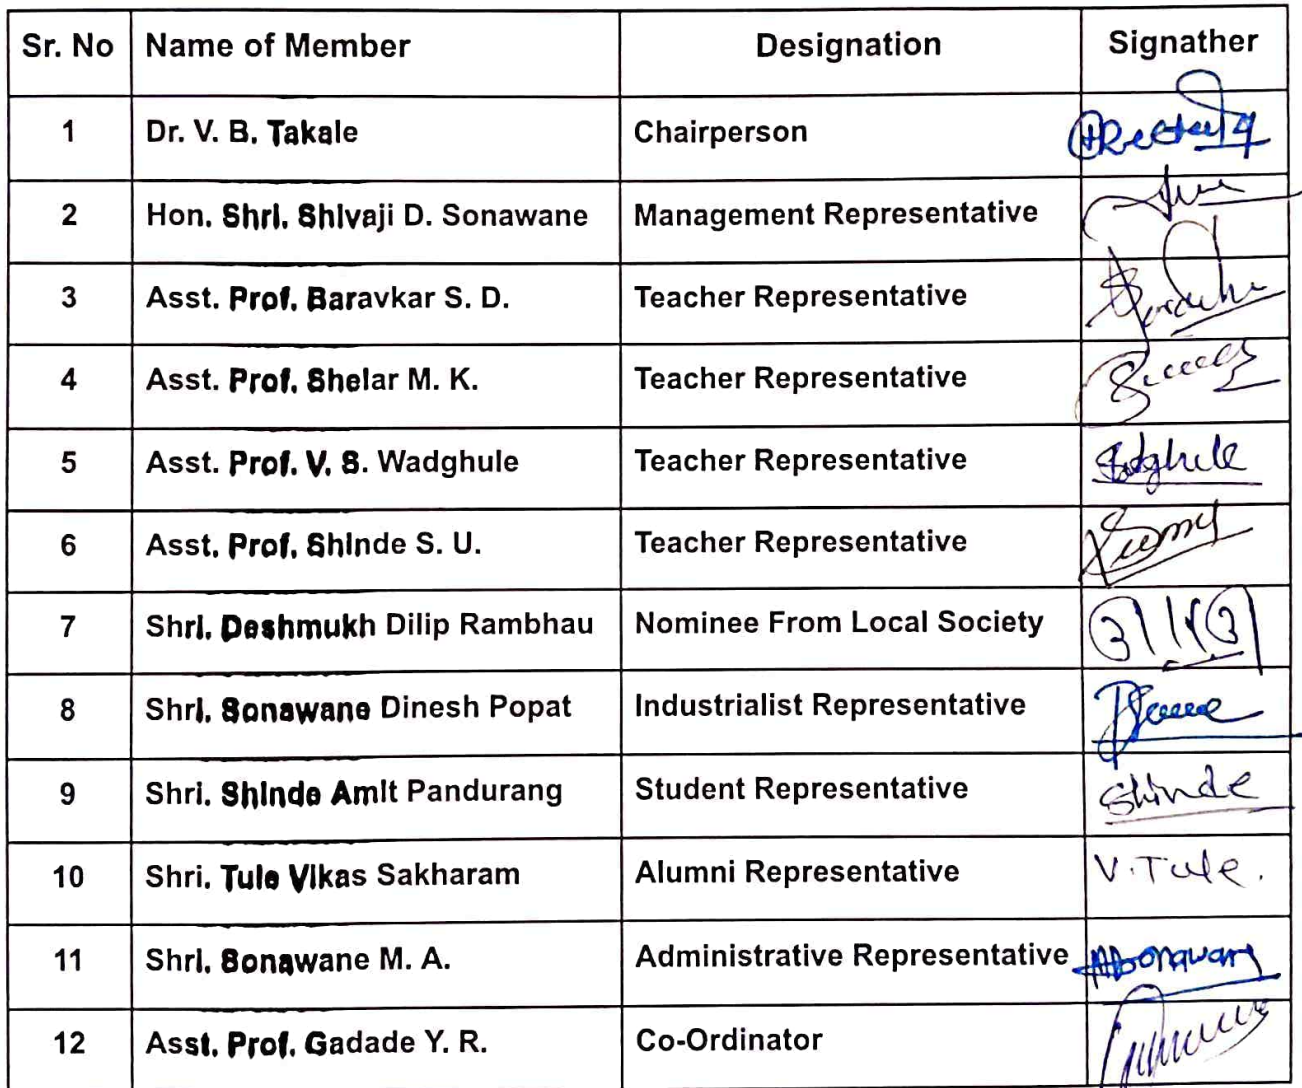 Sr. No Name of Member Designation Signather
1 Dr. V. B. Takale Chairperson
2 Hon. Shri. Shivaji D. Sonawane Management Representative
3 Asst. Prof. Baravkar S. D. Teacher Representative
4 Asst. Prof. Shelar M. K. Teacher Representative
5 Asst. Prof. V. S. Wadghule Teacher Representative
6 Asst. Prof. Shinde S. U. Teacher Representative
7 Shri. Deshmukh Dilip Rambhau Nominee From Local Society
8 Shri. Sonawane Dinesh Popat Industrialist Representative
9 Shri. Shinde Amit Pandurang Student Representative Shinde
10 Shri. Tule Vikas Sakharam Alumni Representative V. Tule.
11 Shri. Sonawane M. A. Administrative Representative
12 Asst. Prof. Gadade Y. R. Co-Ordinator